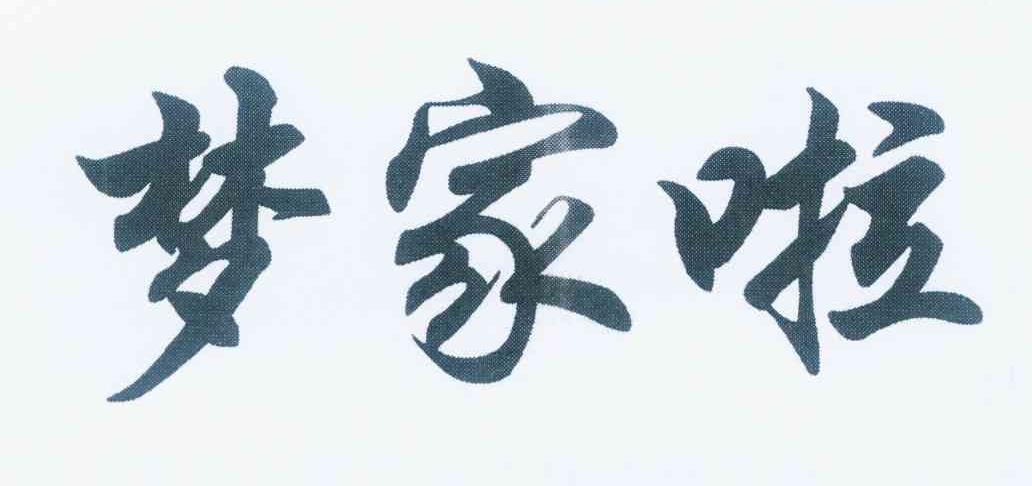 梦家啦